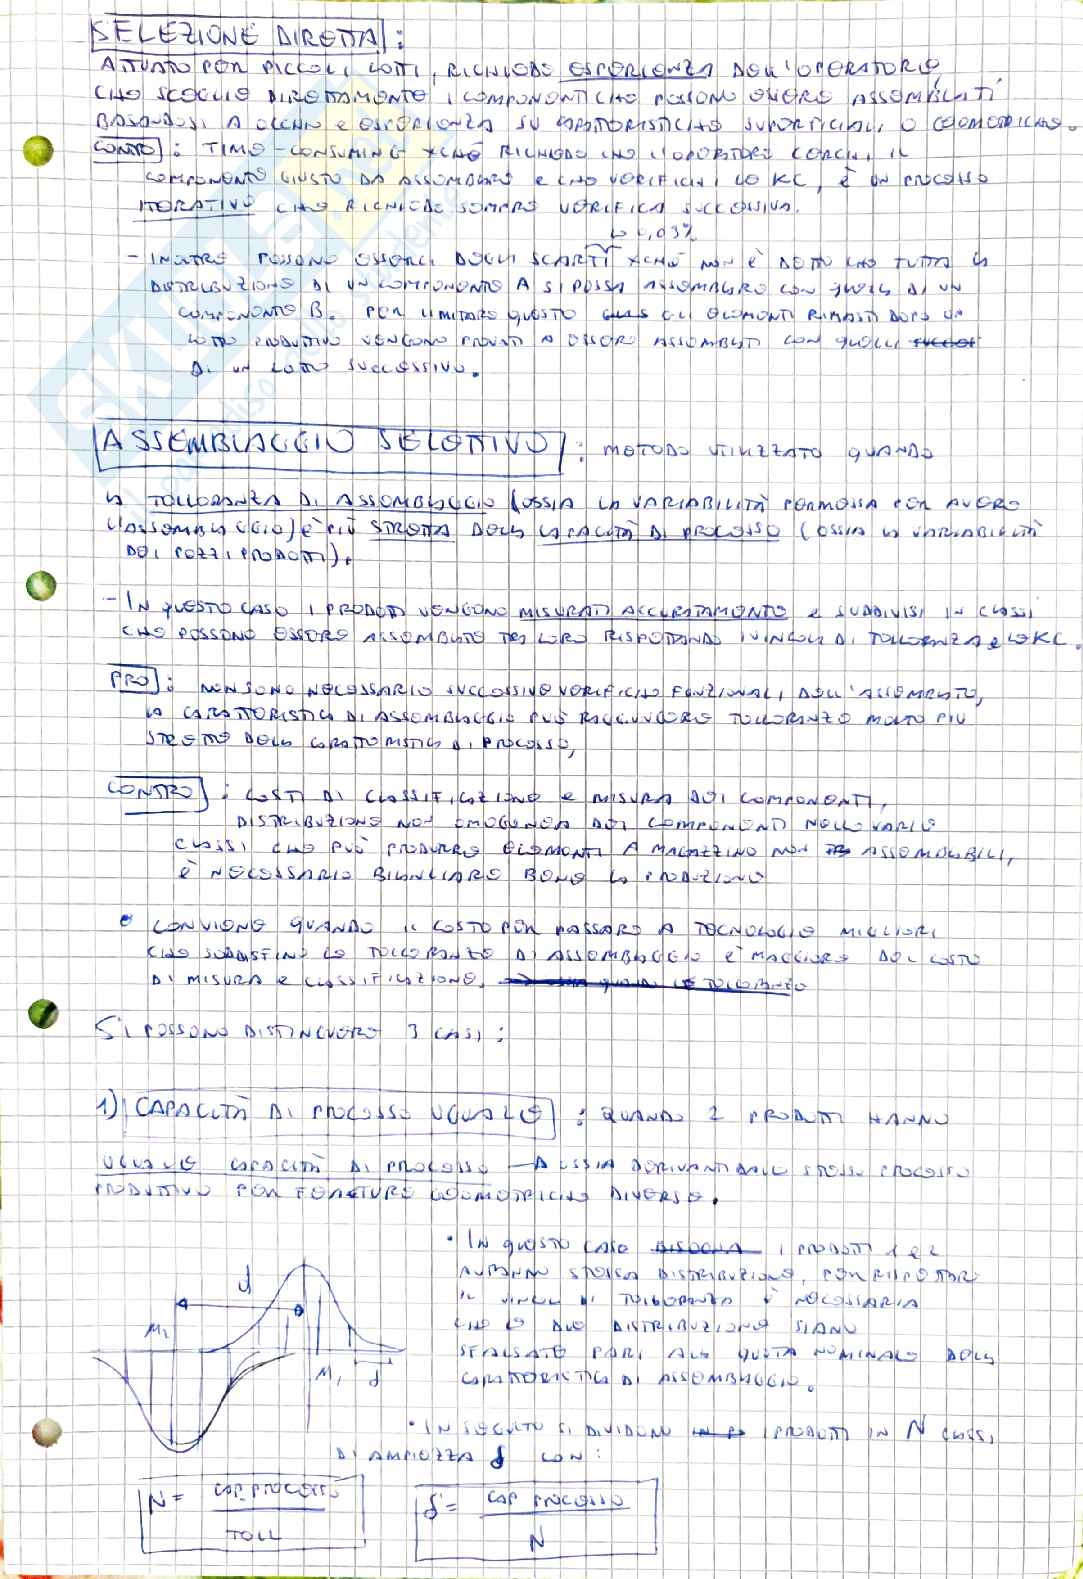 SELEZIONE DIRETTA:
ATTUATO PER PICCOLI LOTTI, RICHIEDE ESPERIENZA DELL'OPERATORE,
CHE SCEGLIE DIRETTAMENTE I COMPONENTI CHE POSSONO ESSERE ASSEMBLATI
BASANDOSI A OCCHIO E ESPERIENZA SU CARATTERISTICHE SUPERFICIALI O GEOMETRICHE.
CONTRO: TIME-CONSUMING XCHÉ RICHIEDE CHE L'OPERATORE CERCHI IL
COMPONENTE GIUSTO DA ASSEMBLARE E CHE VERIFICHI LE KC, È UN PROCESSO
ITERATIVO CHE RICHIEDE SEMPRE VERIFICA SUCCESSIVA.
↳ 0,03%
- INOLTRE POSSONO ESSERCI DEGLI SCARTI XCHÉ NON È DETTO CHE TUTTA LA
DISTRIBUZIONE DI UN COMPONENTE A SI POSSA ASSEMBLARE CON QUELLA DI UN
COMPONENTE B. PER LIMITARE QUESTO GLI ELEMENTI RIMASTI DOPO UN
LOTTO PRODUTTIVO VENGONO PROVATI A ESSERE ASSEMBLATI CON QUELLI
DI UN LOTTO SUCCESSIVO.
ASSEMBLAGGIO SELETTIVO: METODO UTILIZZATO QUANDO
LA TOLLERANZA DI ASSEMBLAGGIO (OSSIA LA VARIABILITÀ PERMESSA PER AVERE
L'ASSEMBLAGGIO) È PIÙ STRETTA DELLA CAPACITÀ DI PROCESSO (OSSIA LA VARIABILITÀ
DEI PEZZI PRODOTTI).
- IN QUESTO CASO I PRODOTTI VENGONO MISURATI ACCURATAMENTE E SUDDIVISI IN CLASSI
CHE POSSONO ESSERE ASSEMBLATE TRA LORO RISPETTANDO I VINCOLI DI TOLLERANZA E LE KC.
PRO: NON SONO NECESSARIE SUCCESSIVE VERIFICHE FUNZIONALI DELL'ASSEMBLATO,
LA CARATTERISTICA DI ASSEMBLAGGIO PUÒ RAGGIUNGERE TOLLERANZE MOLTO PIÙ
STRETTE DELLA CARATTERISTICA DI PROCESSO,
CONTRO: COSTI DI CLASSIFICAZIONE E MISURA DEI COMPONENTI,
DISTRIBUZIONE NON OMOGENEA DEI COMPONENTI NELLE VARIE
CLASSI CHE PUÒ PRODURRE ELEMENTI A MAGAZZINO NON ASSEMBLABILI,
È NECESSARIO BILANCIARE BENE LA PRODUZIONE
• CONVIENE QUANDO IL COSTO PER PASSARE A TECNOLOGIE MIGLIORI
CHE SODDISFINO LE TOLLERANZE DI ASSEMBLAGGIO È MAGGIORE DEL COSTO
DI MISURA E CLASSIFICAZIONE.
SI POSSONO DISTINGUERE 3 CASI:
1) CAPACITÀ DI PROCESSO UGUALE: QUANDO 2 PRODOTTI HANNO
UGUALE CAPACITÀ DI PROCESSO → OSSIA DERIVANTI DALLO STESSO PROCESSO
PRODUTTIVO PER FORNITURE GEOMETRICHE DIVERSE.
• IN QUESTO CASO I PRODOTTI 1 E 2
AVRANNO STESSA DISTRIBUZIONE, PER RISPETTARE
IL VINCOLO DI TOLLERANZA È NECESSARIA
CHE LE DUE DISTRIBUZIONE SIANO
SFALSATE PARI ALLA QUOTA NOMINALE DELLA
CARATTERISTICA DI ASSEMBLAGGIO.
d
M2
M1
δ
• IN SEGUITO SI DIVIDONO I PRODOTTI IN N CLASSI
DI AMPIEZZA δ CON:
N = CAP. PROCESSO / TOLL
δ = CAP PROCESSO / N